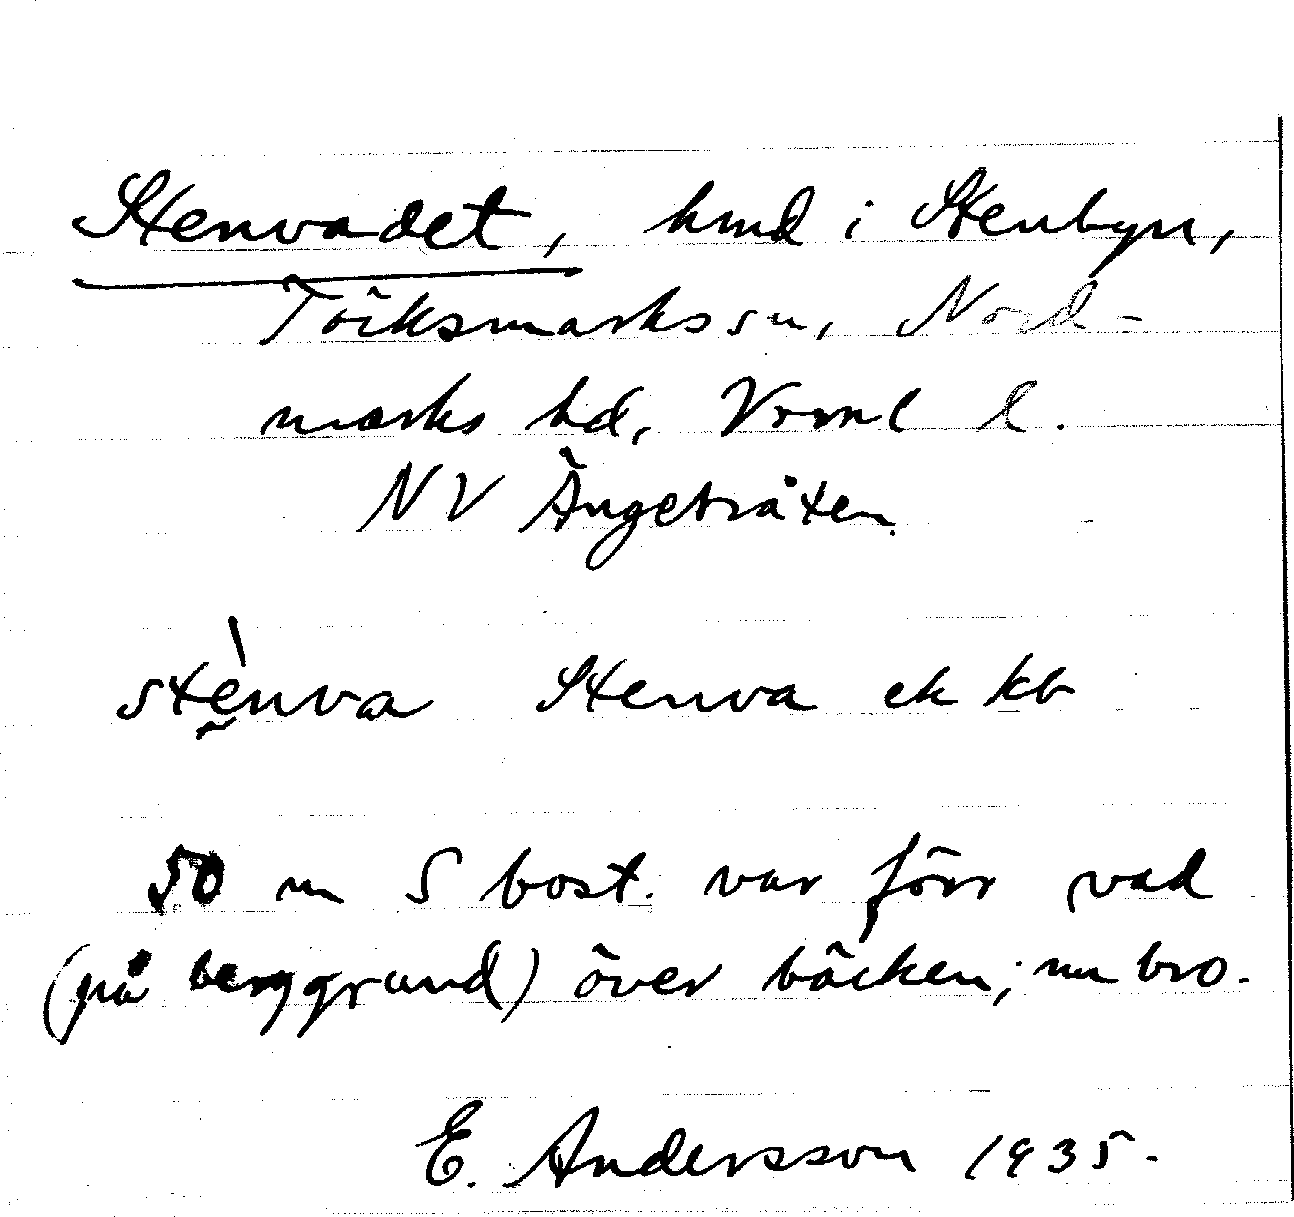 Stenvadet, hmd i Stenbyn,
Töcksmarks sn, Nord-
marks hd, Vrml l.
NV Ängetråten
stènva Stenva ek kb
50 m S bost. var förr vad
(på berggrund) över bäcken; nu bro.
E. Andersson 1935.